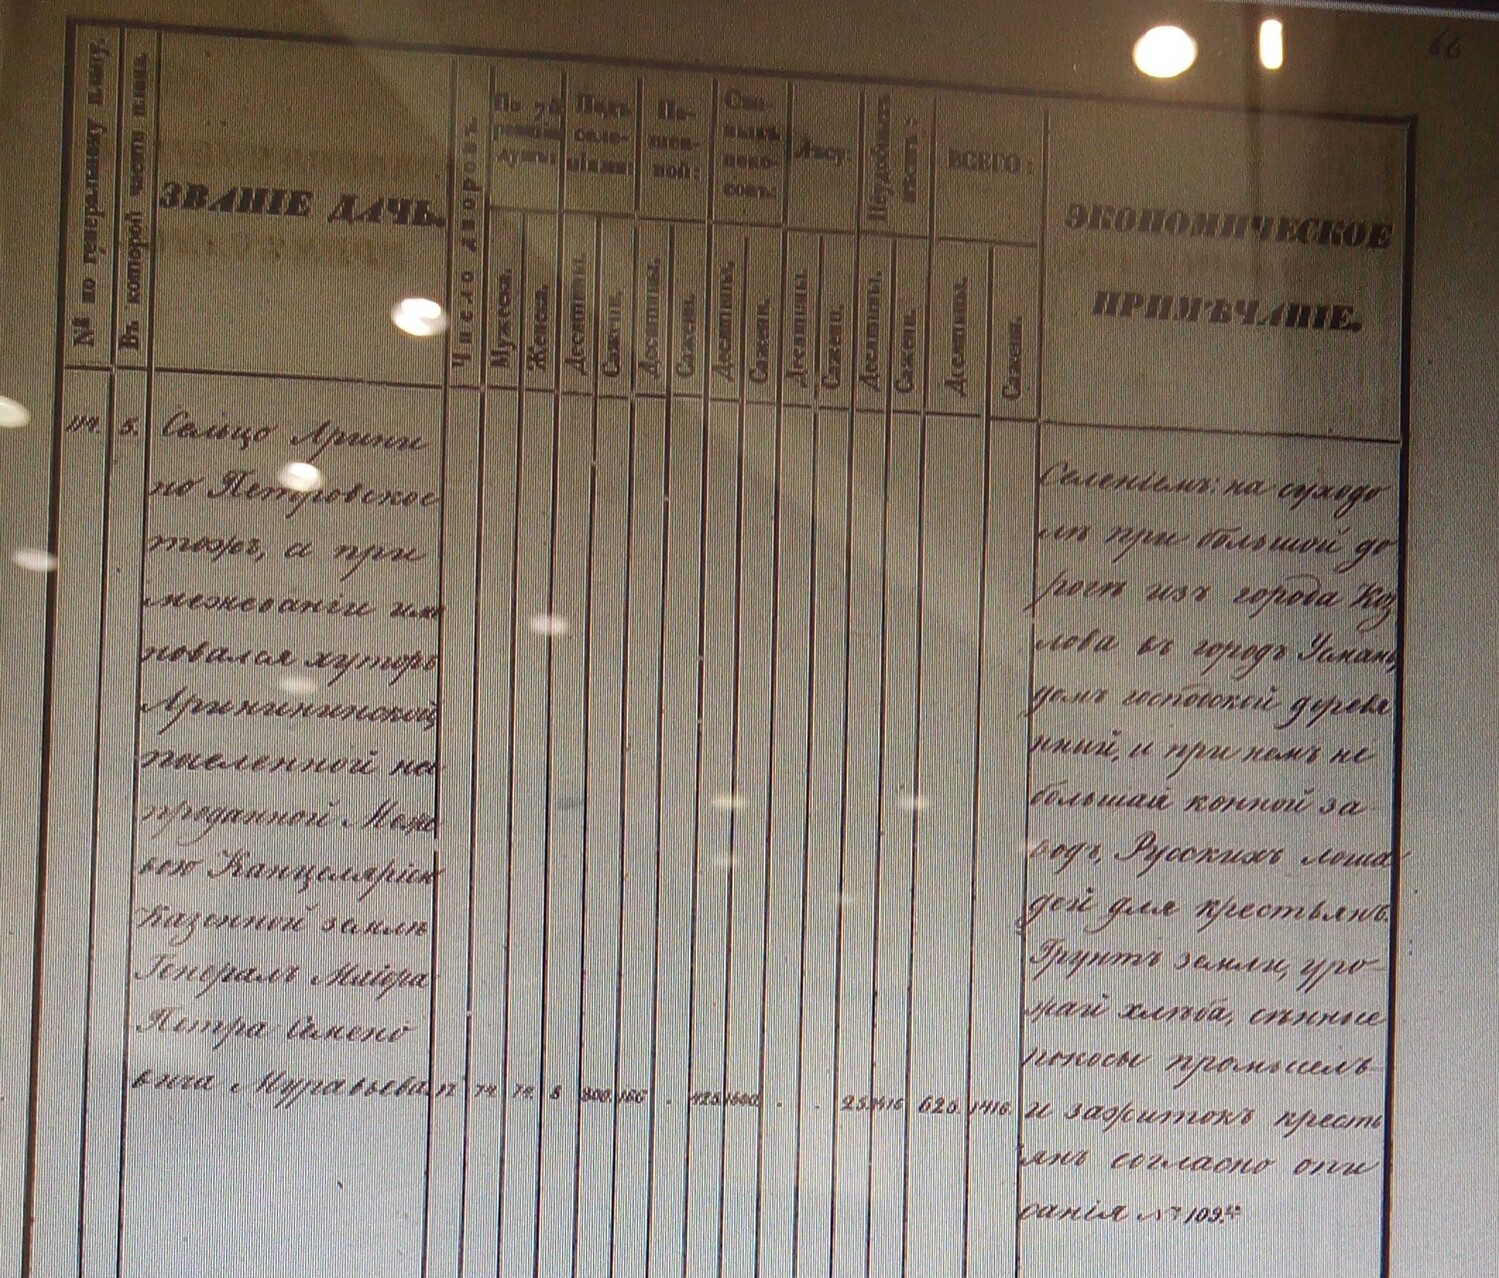 66
№ по генеральному плану.
Въ которой части плана.
ЗВАНІЕ ДАЧЬ.
Число дворовъ.
По 7й ревизіи душъ:
Мужеска.
Женска.
Подъ селе-
ніями:
Десятины.
Сажени.
Па-
шен-
ной:
Десятины.
Сажени.
Сѣн-
ныхъ
поко-
совъ:
Десятины.
Сажени.
Лѣсу:
Десятины.
Сажени.
Неудобныхъ
Десятины.
Сажени.
ВСЕГО:
Десятины.
Сажени.
ЭКОНОМИЧЕСКОЕ
ПРИМѢЧАНІЕ.
5.
Сельцо Арини
но Петровское
тожъ, а при
межеваніи име
новался хуторъ
Арининской
населенной на
проданной Меже
вою Канцеляріею
Казенной землѣ
Генералъ Маіора
Петра Семено
вича Муравьева
17 74 74. 8 300. 166 . 425 1600 . . 25 1416 625. 1416.
Селеніемъ: на суходо
лѣ при большой до
рогѣ изъ города Коз
лова въ городъ Усмань,
домъ господской деревя
нный, и при немъ не
большай конной за
водъ, Русскихъ лоша
дей для крестьянъ.
Грунтъ земли, уро-
жай хлѣба, сѣнные
покосы промыселъ
и зажитокъ кресть
янъ согласно опи
санія № 109.